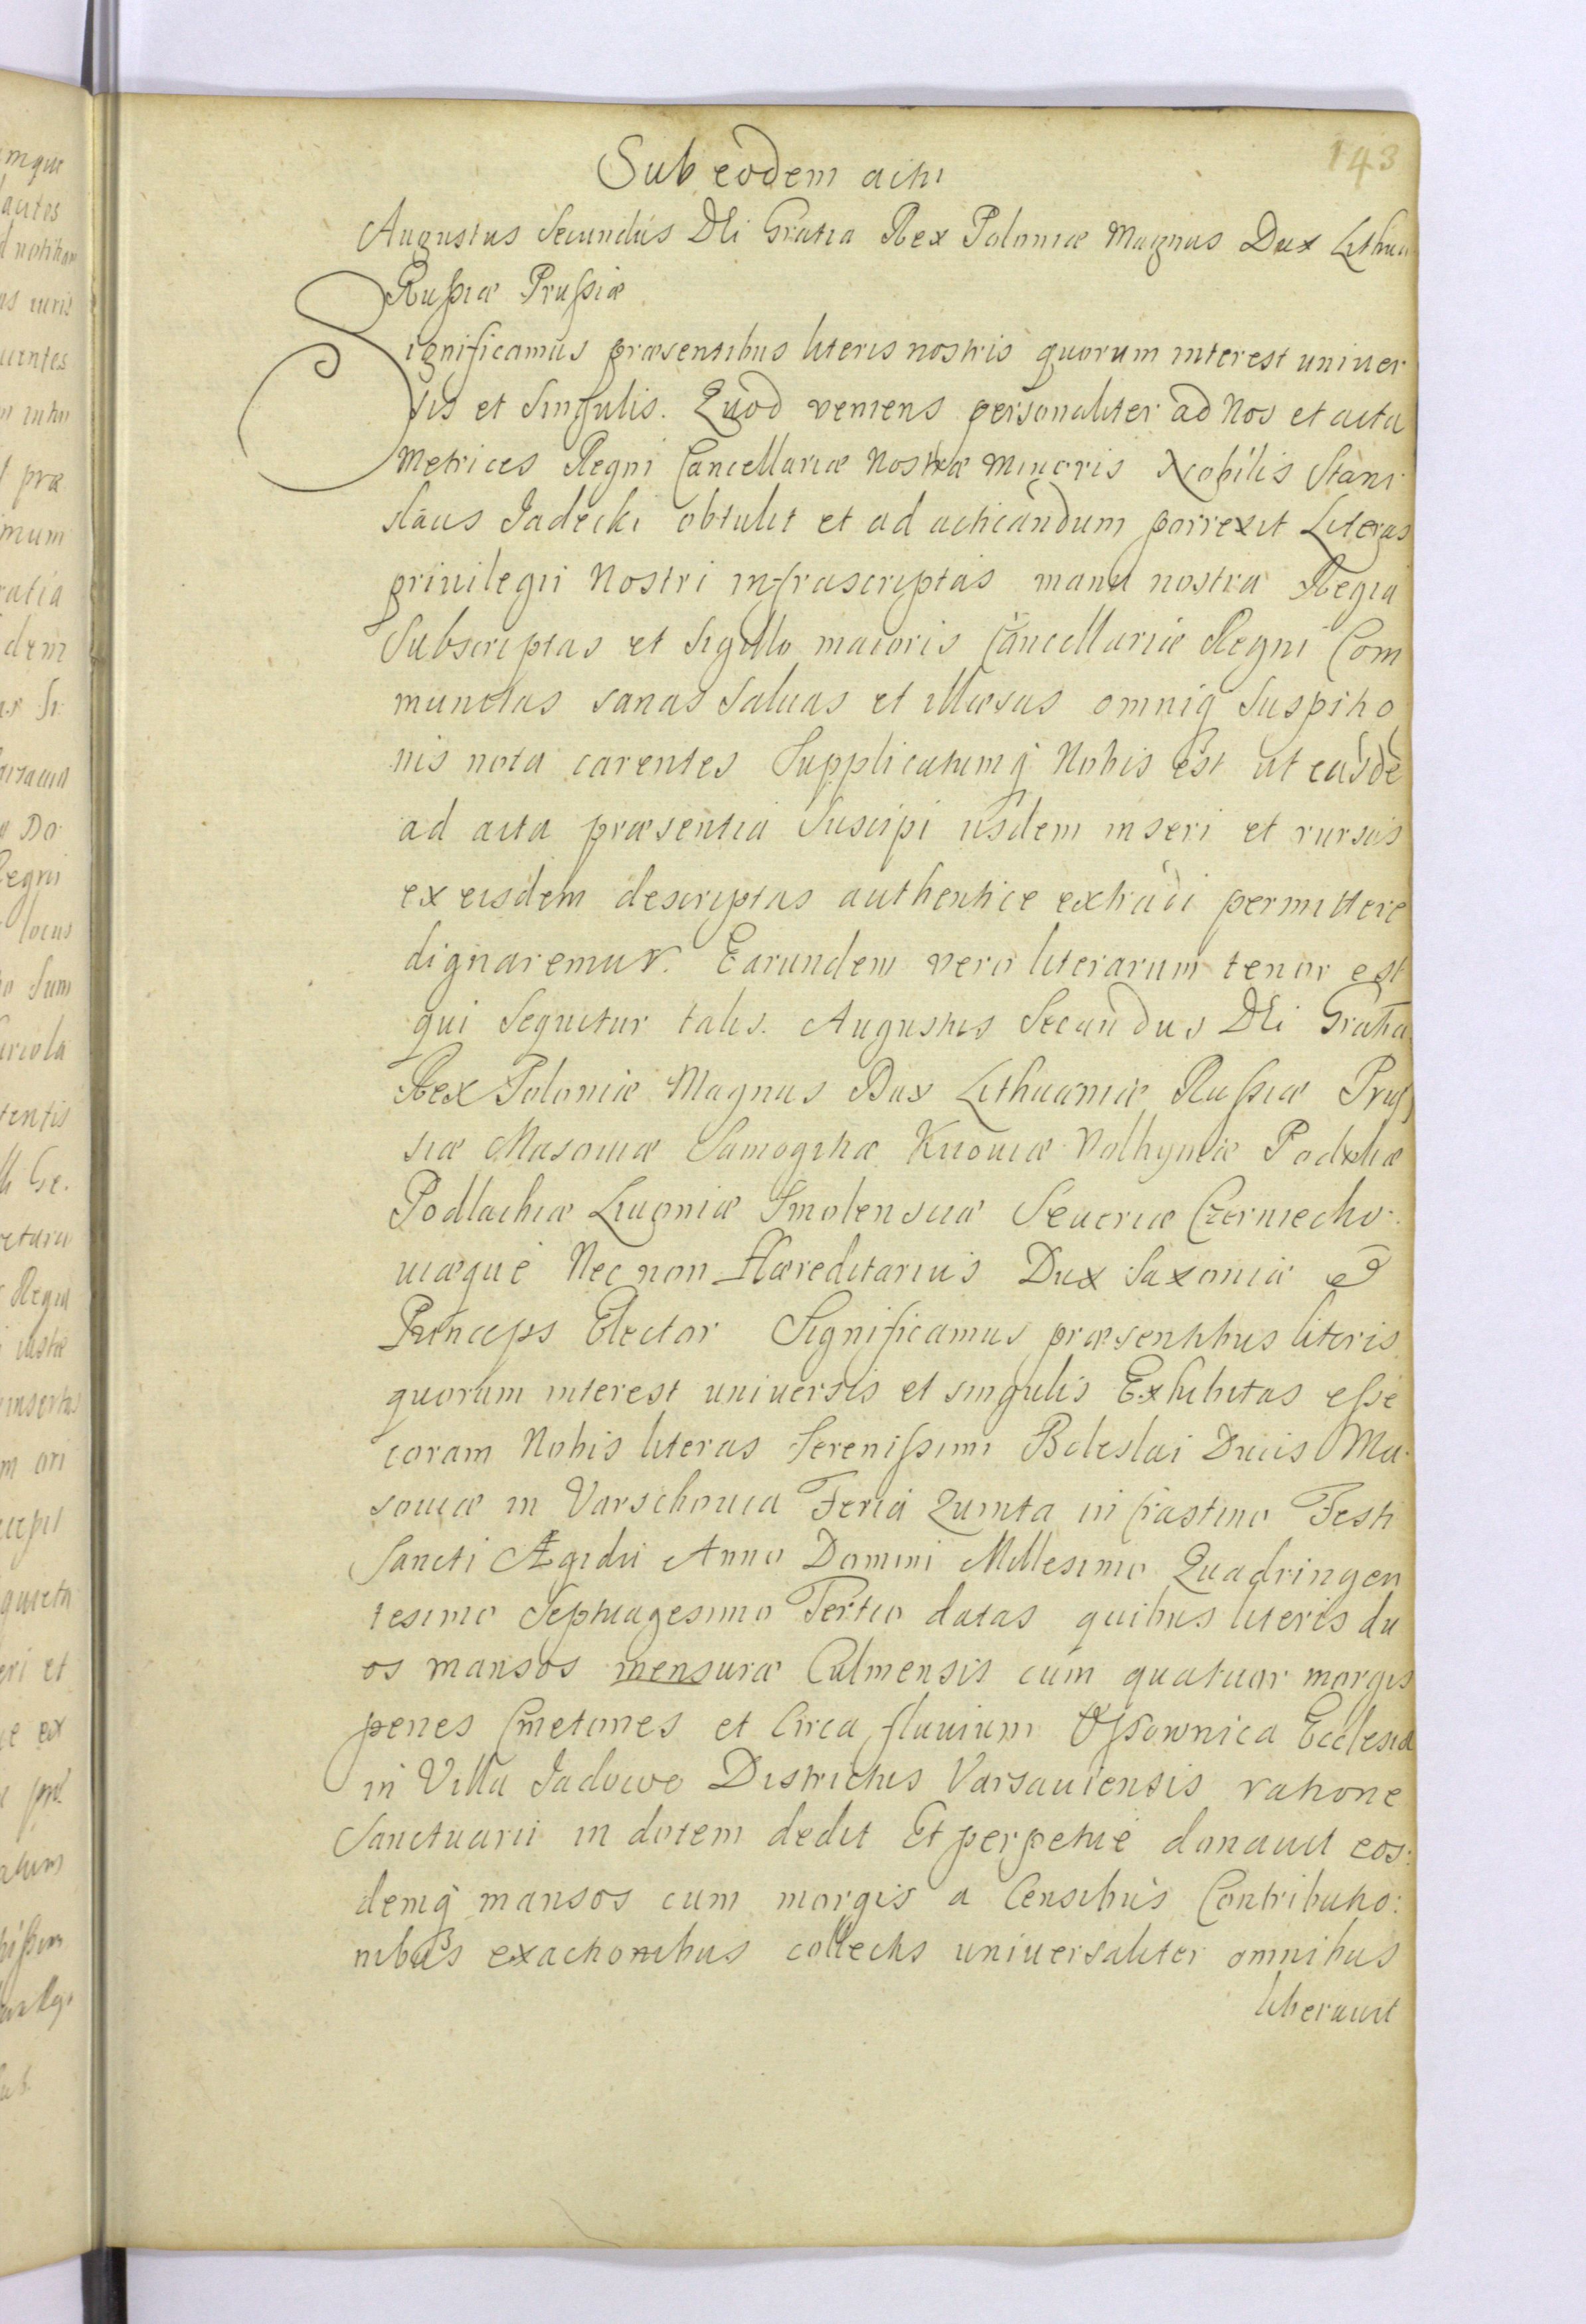 143
Sub eodem actu
Augustus Secundus DEi Gratia Rex Poloniæ Magnus Dux Lithua
Rußiæ Prußiæ
Significamus præsentibus literis nostris quorum interest univer
sis et singulis. Quod veniens personaliter ad Nos et acta
Metrices Regni Cancellariæ Nostræ Minoris Nobilis Stani
slaus Jadecki obtulit et ad acticandum porrexit Literas
privilegii Nostri infrascriptas manu nostra Regia
Subscriptas et Sigillo maioris Cancellariæ Regni Com
munitas sanas salvas et illæsas omniq̃ Suspitio
nis nota carentes Supplicatumq̃ Nobis est ut easdē
ad acta præsentia Suscipi iisdem inseri et rursus
ex eisdem descriptas authentice extradi permittere
dignaremur. Earundem vero literarum tenor est
qui Sequitur talis. Augustus Secundus DEi Gratia
Rex Poloniæ Magnus Dux Lithuaniæ Rußiæ Prus
siæ Masoviæ Samogitiæ Kiioviæ Volhyniæ Podoliæ
Podlachiæ Livoniæ Smolensciæ Severiæ Czerniecho
viæque Nec non Hæreditarius Dux Saxoniæ et
Princeps Elector Significamus præsentibus literis
quorum interest universis et singulis Exhibitas eße
coram Nobis literas Serenißimi Boleslai Ducis Ma
soviæ in Varschovia Feria Quinta in Crastino Festi
Sancti Ægidii Anno Domini Millesimo Quadringen
tesimo Septuagesimo Tertio datas quibus literis du
os mansos mensuræ Culmensis cum quatuor morgis
penes Cmetones et Circa fluvium Oßownica Ecclesiæ
in Villa Jadowo Districtus Varsaviensis ratione
Sanctuarii in dotem dedit Et perpetue donavit eos
demq̃ mansos cum morgis a Censibus Contributio:
nibus exactionibus collectis universaliter omnibus
liberavit